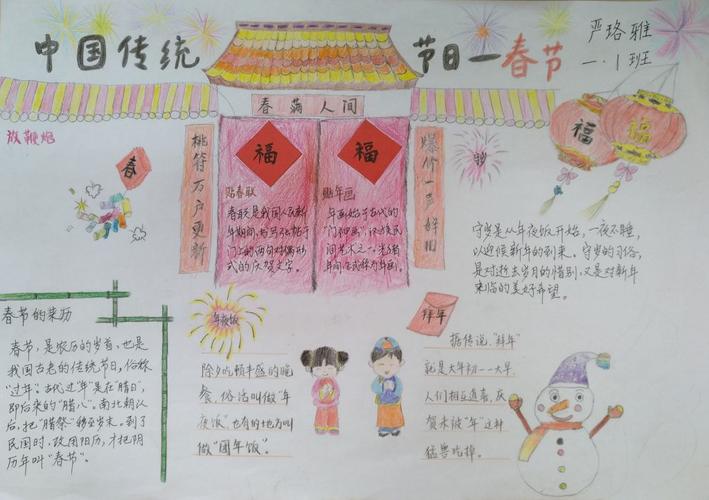 中国传统
节日一春节
严珞雅
一.1班
春满人间
放鞭炮
春
桃符万户更新
爆竹一声辞旧
福
福
福
贴春联
春联是我国人民新
门上的两句对偶形
式的庆贺文字。
贴年画
年画始于古代的
守岁是从年夜饭开始,一夜不睡,
以迎候新年的到来。守岁的习俗,
是对逝去岁月的惜别,又是对新年
来临的美好希望。
春节的来历
春节,是农历的岁首,也是
我国古老的传统节日,俗称
"过年"。古代过"年"是在"腊日",
即后来的"腊八"。南北朝以
后,把"腊祭"移至岁末。到了
民国时,改用阳历,才把阴
历年叫"春节"。
年夜饭
除夕吃顿丰盛的晚
餐,俗话叫做"年
夜饭"。也有的地方叫
做"团年饭"。
拜年
据传说,"拜年"
就是大年初一一大早
人们相互道喜,庆
贺未被"年"这种
猛兽吃掉。